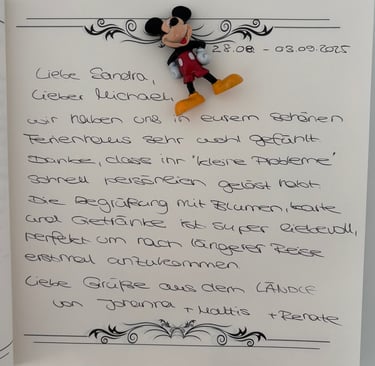 28.08 - 03.09.2025
Liebe Sandra,
Lieber Michael,
wir haben uns in eurem schönen
Ferienhaus sehr wohl gefühlt
Danke, dass ihr "kleine Probleme"
schnell persönlich gelöst habt
Die Begrüßung mit Blumen, Karte
und Getränke ist super liebevoll,
perfekt um nach längerer Reise
erstmal anzukommen.
Liebe Grüße aus dem LÄNDLE
von Johanna + Mattis + Renate